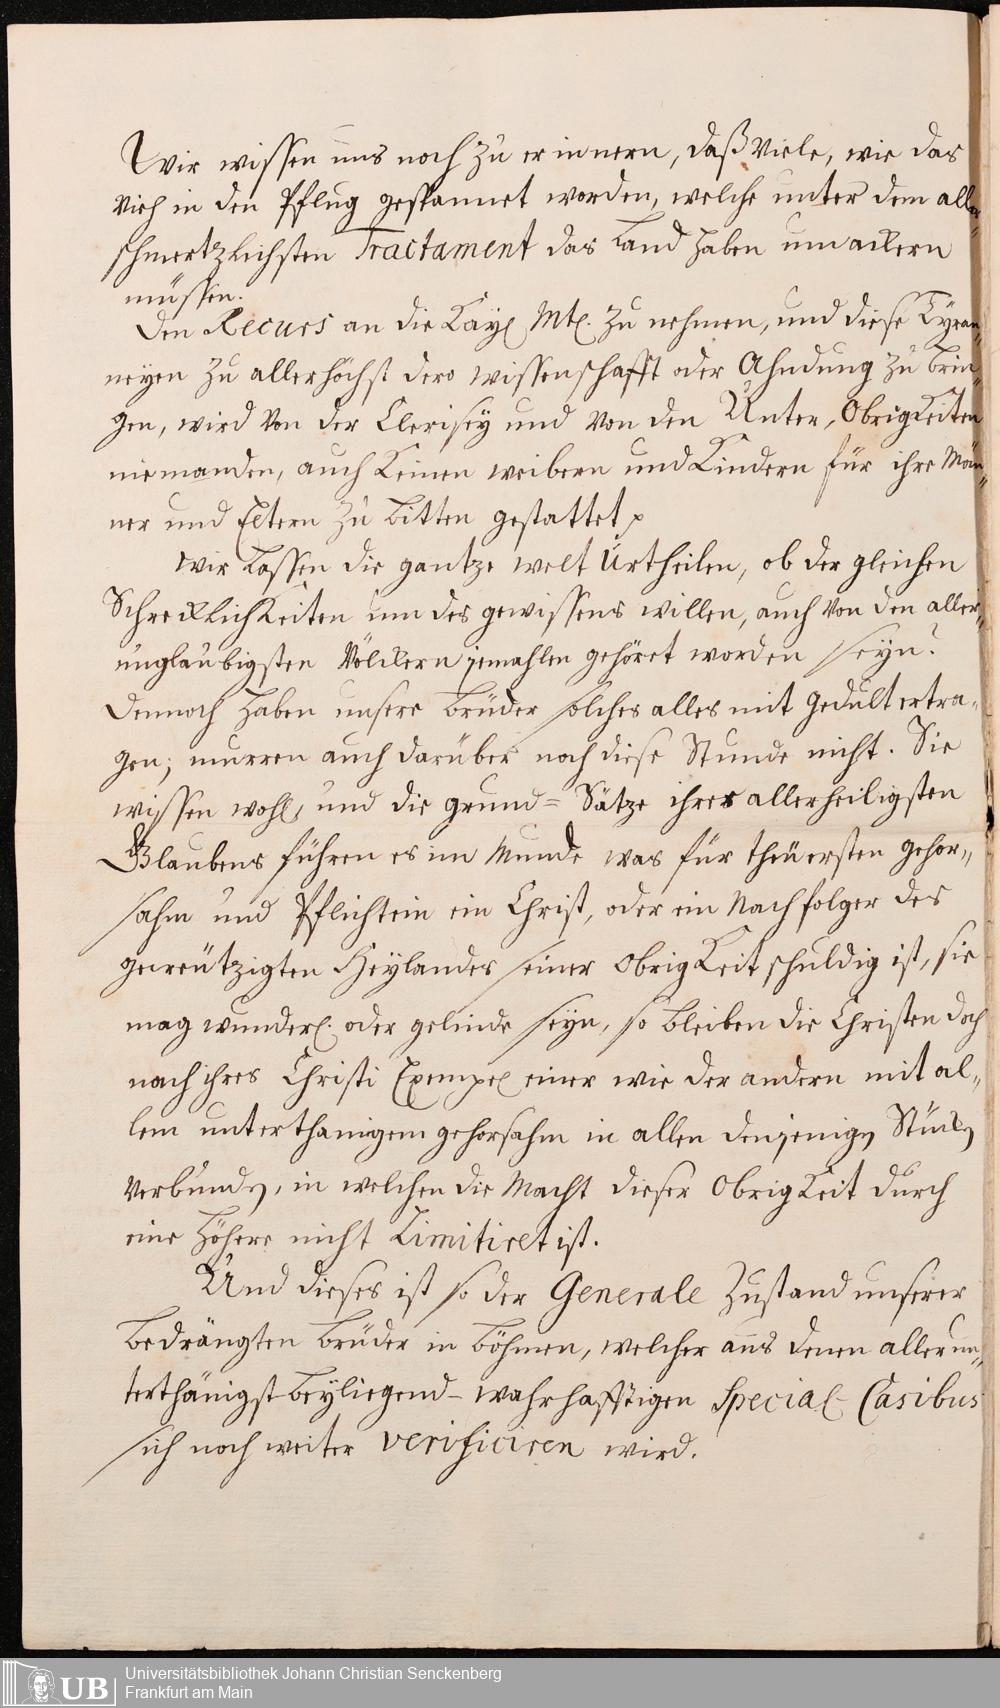 Wir wissen uns noch zu erinnern, daß Viele, wie das
Vieh in den Pflug gespannet worden, welche unter dem aller-
schmertzlichsten Tractament das Land haben um ackern
müssen.
Den Recurs an die Kayl. Mtl. zu nehmen, und diese Tÿran-
neyen zu allerhöchst dero wissenschafft oder Ahndung zu brin-
gen, wird von der Clerisey und von den Unter, Obrigkeiten
niemanden, auch keinen weibern und Kindern für ihre Män-
ner und Eltern zu bitten gestattet
Wir lassen die gantze welt Urtheilen, ob der gleichen
Schrecklichkeiten um des gewissens willen, auch von den aller-
unglaubigsten Völckern jemahlen gehöret worden seyn?
Dennoch haben unsere Brüder solches alles mit Gedult ertra-
gen; murren auch darüber noch diese Stunde nicht. Sie
wissen wohl, und die grund= Sätze ihres allerheiligsten
Glaubens führen es im Munde was für theuersten gehor-
sahm und Pflichten ein Christ, oder ein Nachfolger des
gecreützigten Heylandes seiner Obrigkeit schuldig ist, sie
mag wunderl. oder gelinde seyn, so bleiben die Christen doch
nach ihres Christi Exempel einer wie der andern mit al-
lem unterthanigem gehorsahm in allen denjenigen Stücken
Verbunden, in welchen die Macht dieser Obrigkeit durch
eine höhere nicht Limitiret ist.
Und dieses ist so der Generale Zustand unserer
bedrängten Brüder in Böhmen, welcher aus denen allerun-
terthänigst beyliegend- wahrhafftigen Special- Casibus
sich noch weiter verificiren wird.
UB
Universitätsbibliothek Johann Christian Senckenberg
Frankfurt am Main